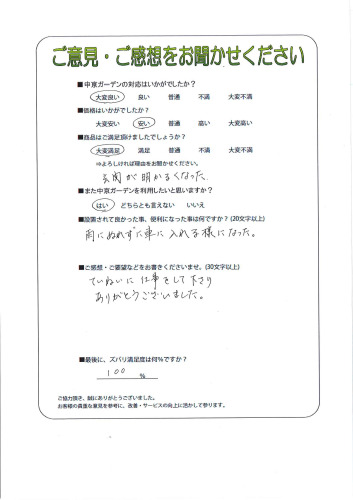 ご意見・ご感想をお聞かせください
■中京ガーデンの対応はいかがでしたか？
大変良い 良い 普通 不満 大変不満
■価格はいかがでしたか？
大変安い 安い 普通 高い 大変高い
■商品はご満足頂けましたでしょうか？
大変満足 満足 普通 不満 大変不満
⇒よろしければ理由をお聞かせください。
玄関が明かるくなった。
■また中京ガーデンを利用したいと思いますか？
はい どちらとも言えない いいえ
■設置されて良かった事、便利になった事は何ですか？(20文字以上)
雨にぬれずに車に入れる様になった。
■ご感想・ご要望などをお書きくださいませ。(30文字以上)
ていねいに仕事をして下さり
ありがとうございました。
■最後に、ズバリ満足度は何%ですか？
100 %
ご協力頂き、誠にありがとうございました。
お客様の貴重な意見を参考に、改善・サービスの向上に活かして参ります。